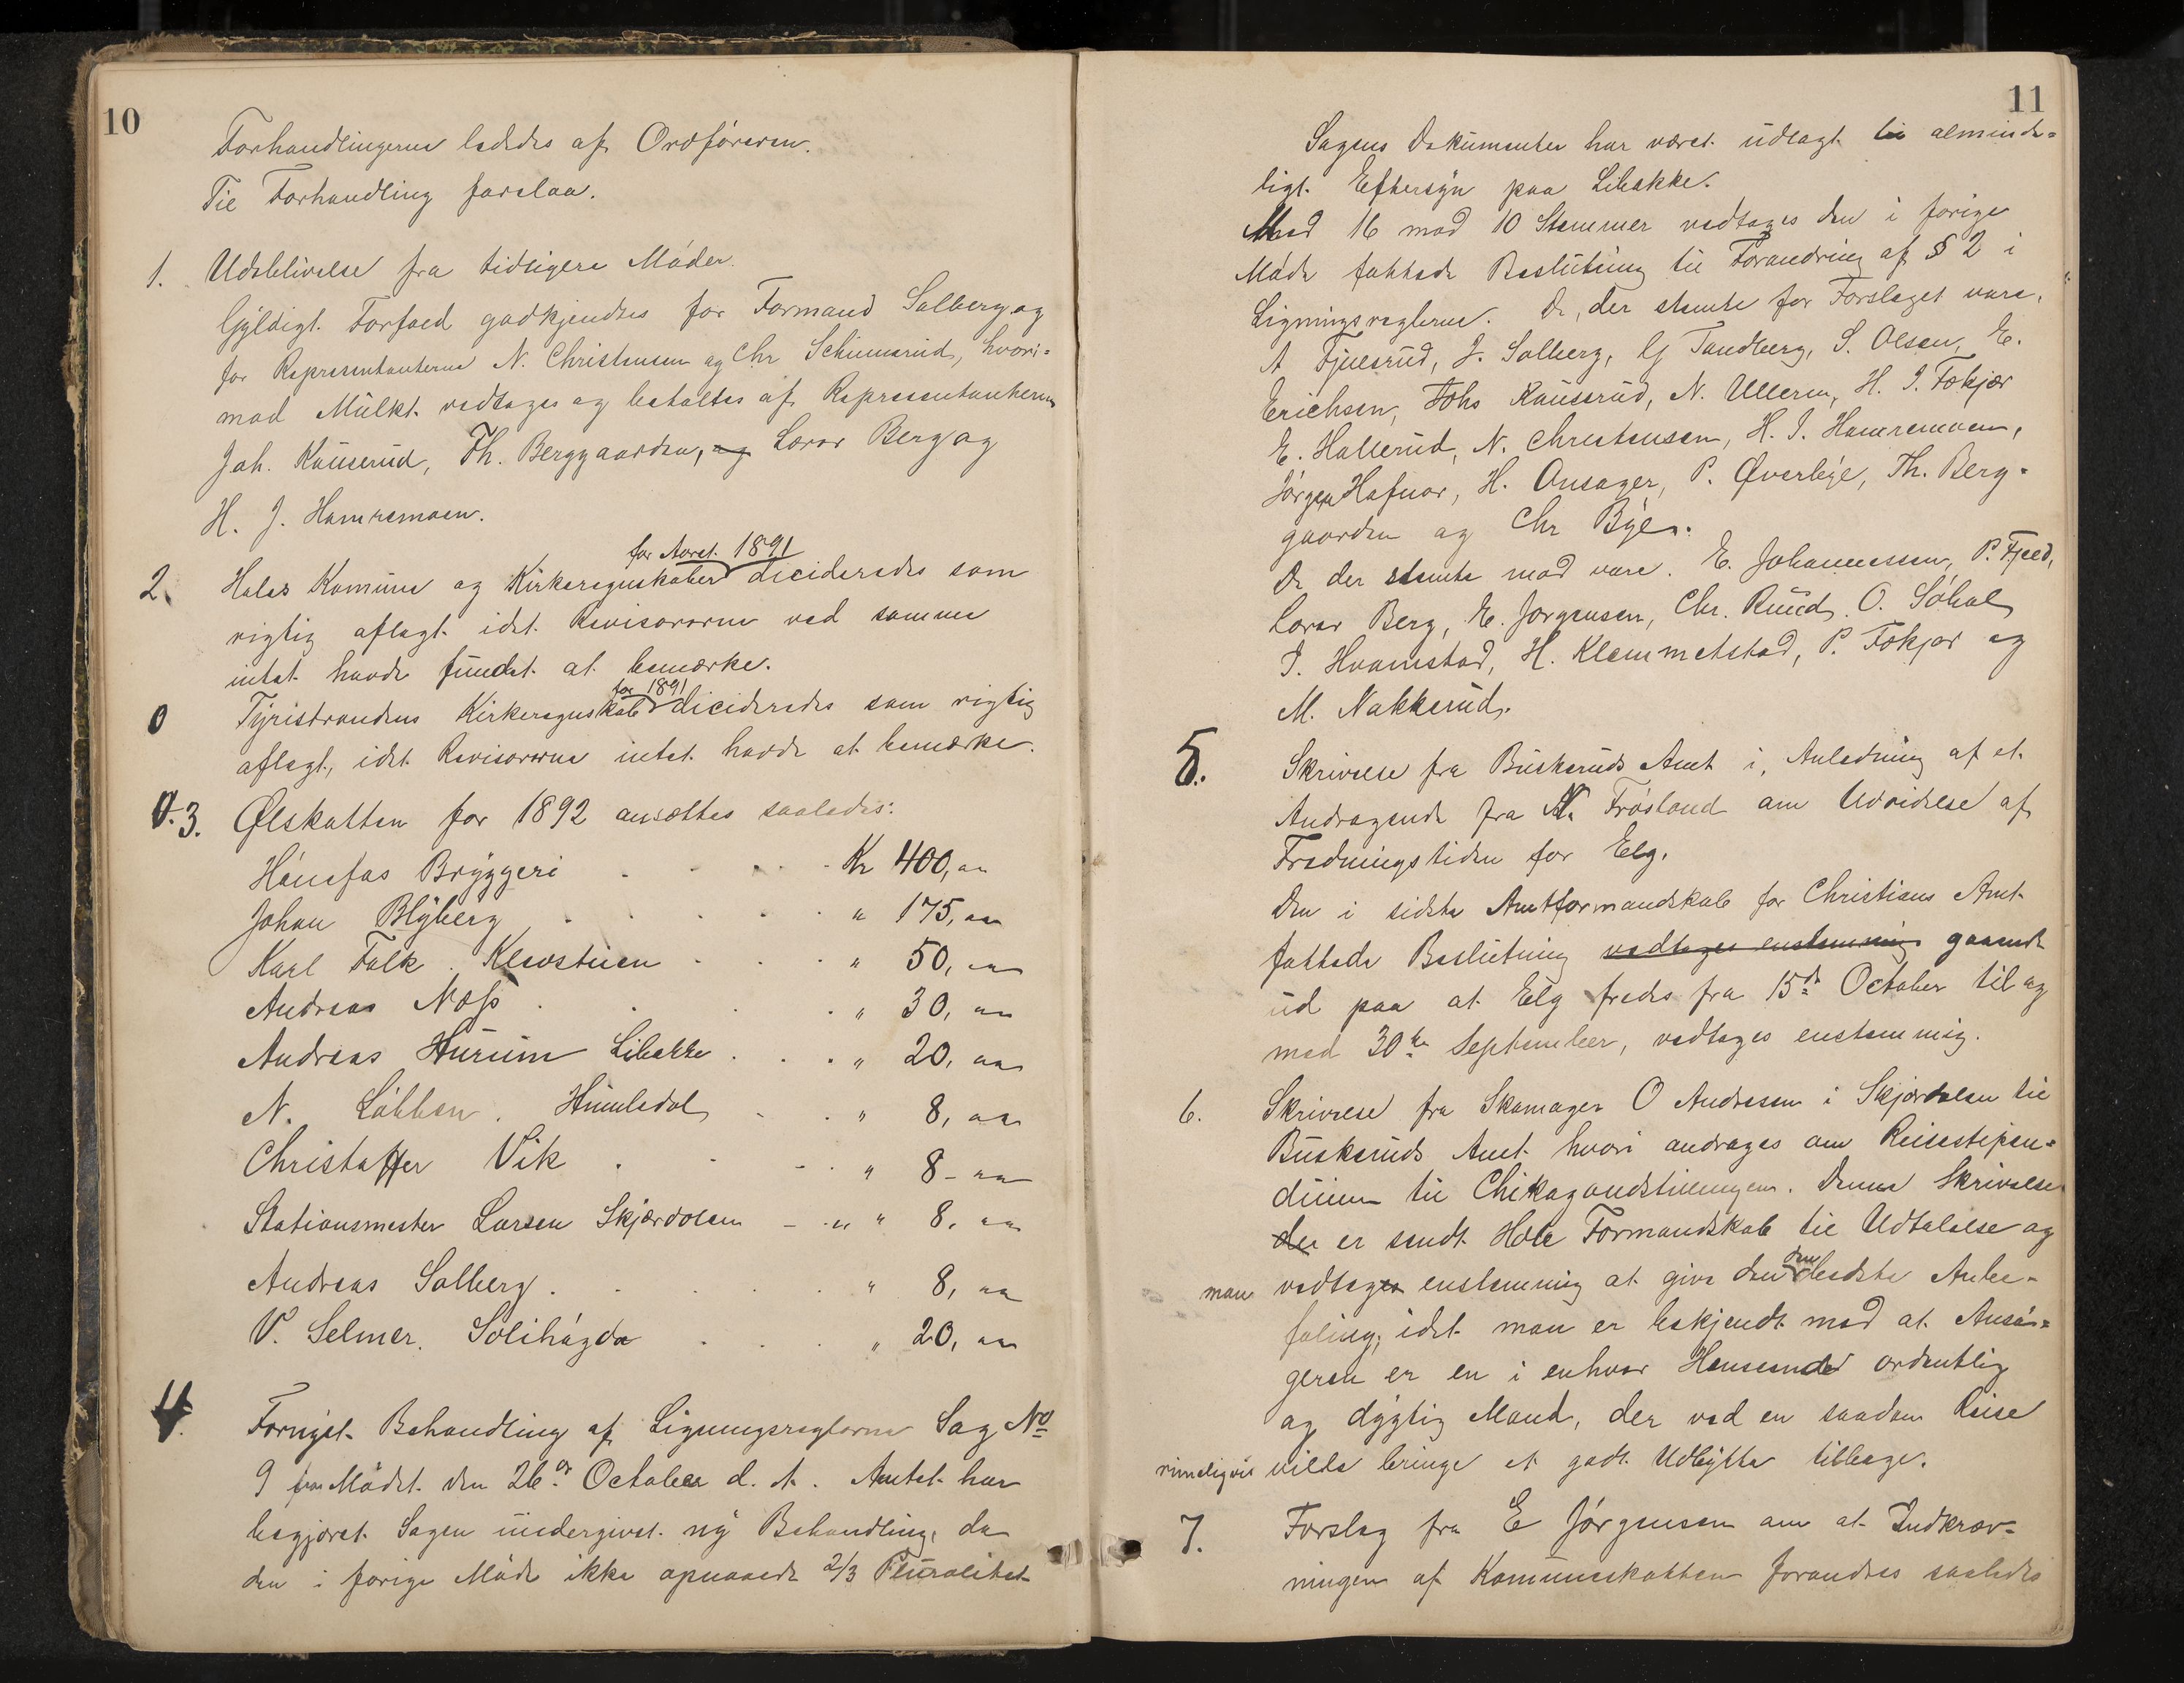 10
Forhandlingerne lededes af Ordföreren.
Til Forhandling forelaa.
1. Udeblivelse fra tidligere Möder.
Gyldigt Forfald godkjendtes for Formand Solberg og
for Repræsentanterne N. Christensen og Chr Schimerud, hvori-
mod Mulkt vedtages og betaltes af Repræsentanterne
Joh. Kauserud, Th. Berggaarden, og Lovor Berg og
H. J. Hamremoen.
for Aaret 1891
2. Holes Komune og Kirkeregnskaber decideredes som
rigtig aflagt idet Revisorerne ved samme
intet havde fundet at bemærke.
for 1891
0 Tyristrandens Kirkeregnskab decideredes som rigtig
aflagt, idet Revisorerne intet havde at bemærke.
3. Ølskatten for 1892 ansættes saaledes:
Hönefos Bryggeri . . . . Kr 400, "
Johan Blyberg . . . . . " 175, "
Karl Falk. Klevstuen . . . " 50, "
Andreas Næss . . . . " 30, "
Andreas Hurum Libakke . . . " 20, "
N. Löbben. Humledal . . " 8, "
Christoffer Vik . . . " 8 - "
Stationsmester Larsen Skjærdalen - " " 8, "
Andreas Solberg . . . . . " 8, "
V. Selmer. Solihögda . . . " 20, "
4. Fornyet Behandling af Ligningsreglerne Sag No
9 fra Mödet den 26de October d. A. Amtet har
begjæret Sagen undergivet ny Behandling, da
den i forige Möde ikke opnaaede 2/3 Pluralitet
11
Sagens Dokumenter har været udlagt til alminde-
ligt Eftersyn paa Libakke.
Med 16 mod 10 Stemmer vedtages den i forige
Möde fattede Beslutning til Forandring af § 2 i
Ligningsreglerne. De, der stemte for Forslaget vare,
A Fjulsrud, J. Solberg, G Tandberg, S. Olsen, E.
Erichsen, Johs Kauserud, N. Ullern, H. I. Fækjær
E. Hallerud, N. Christensen, H. I. Hamremoen,
Jörgen Hafnor, H. Onsager, P. Øverbye, Th. Berg-
gaarden og Chr Bye.
De der stemte mod vare. E. Johannessen, P. Fjeld,
Lovor Berg, E. Jörgensen, Chr. Ruud, O. Söhol
I. Hvamstad, H. Klemmetstad, P. Fækjær og
M. Nakkerud.
5. Skrivelse fra Buskeruds Amt i Anledning af et
Andragende fra N. Frösland om Udvidelse af
Fredningstiden for Elg.
Den i sidste Amtformandskab for Christians Amt
fattede Beslutning vedtages enstemmig gaaende
ud paa at Elg fredes fra 15de October til og
med 30te September, vedtages enstemmig.
6. Skrivelse fra Skomager O Andresen i Skjærdalen til
Buskeruds Amt hvori andrages om Reisestipen-
dium til Chikagoudstillingen. Denne Skrivelse
der er sendt Hole Formandskab til Udtalelse og
man vedtager enstemmig at give den den bedste Anbe-
faling, idet man er bekjendt med at Ansö-
geren er en i enhver Henseende ordentlig
og dygtig Mand, der ved en saadan Reise
rimeligvis vilde bringe et godt Udbytte tilbage.
7. Forslag fra E Jörgensen om at Indkræv-
ningen af Kommuneskatten forandres saaledes